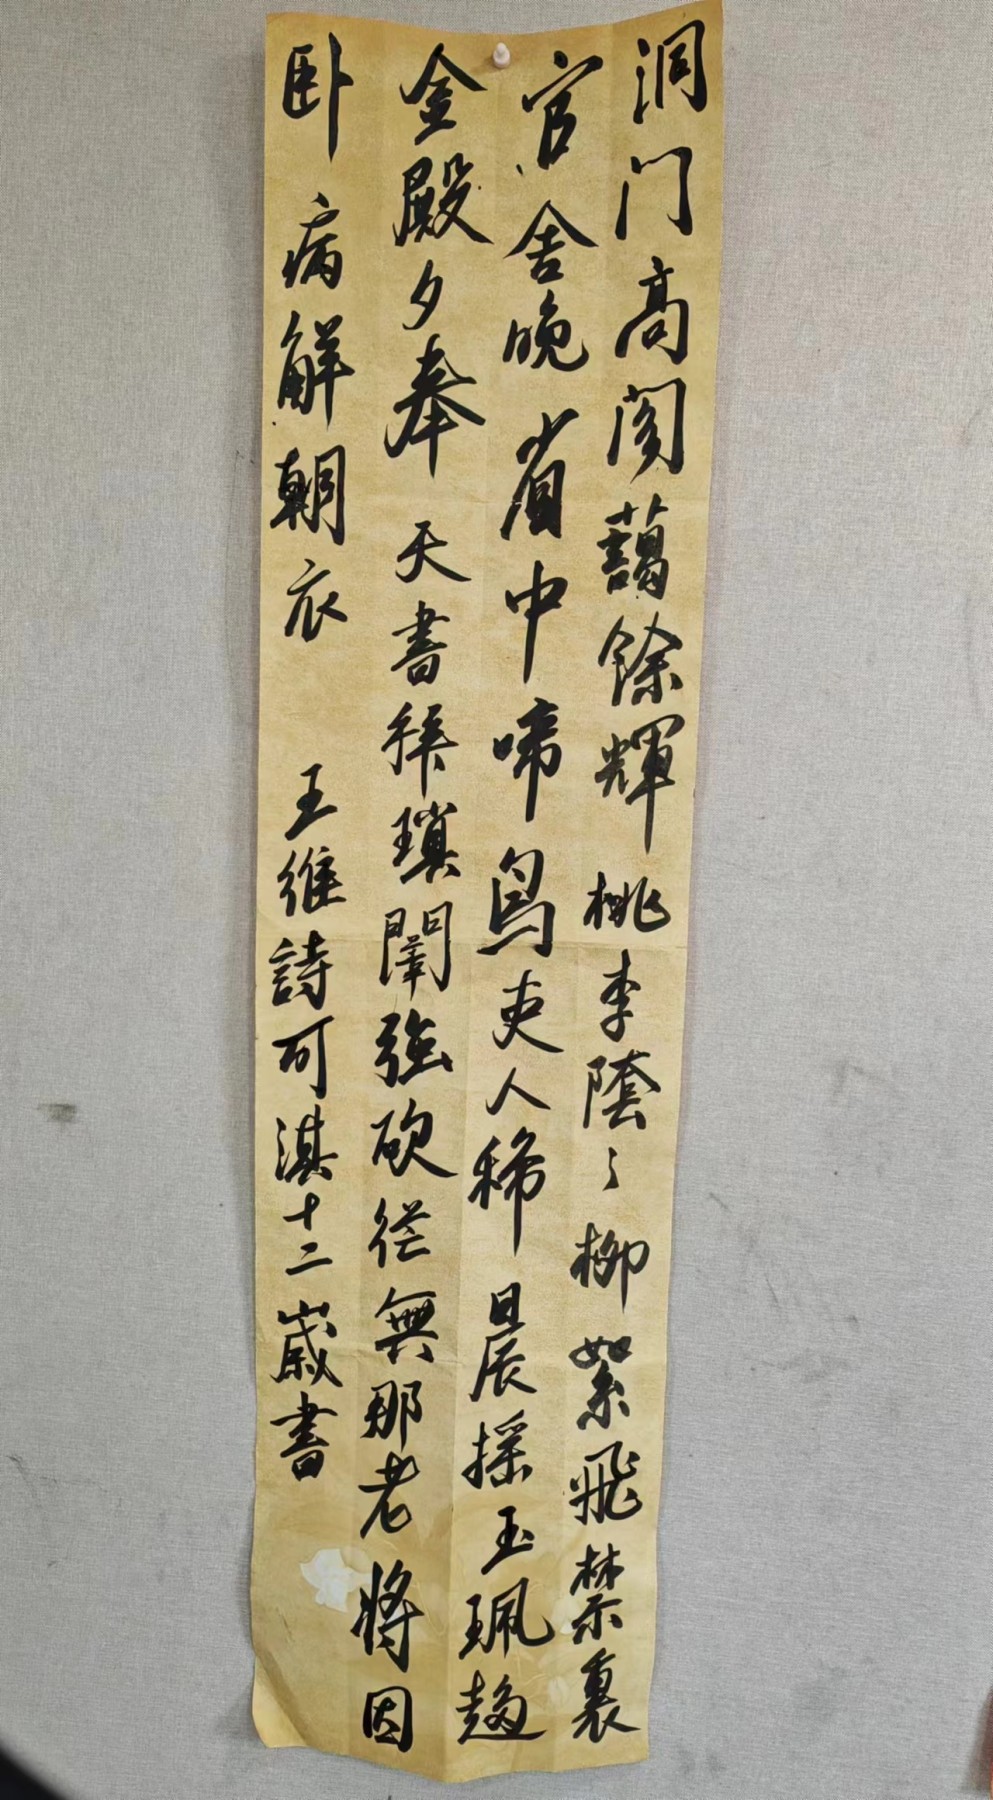 洞门高阁藹餘輝桃李陰〻柳絮飛禁裏
官舍晚省中啼鳥吏人稀晨摇玉珮趨
金殿夕奉天書拜瑣闈強欲從無那老將因
卧病解朝衣 王維詩可淇十二歲書